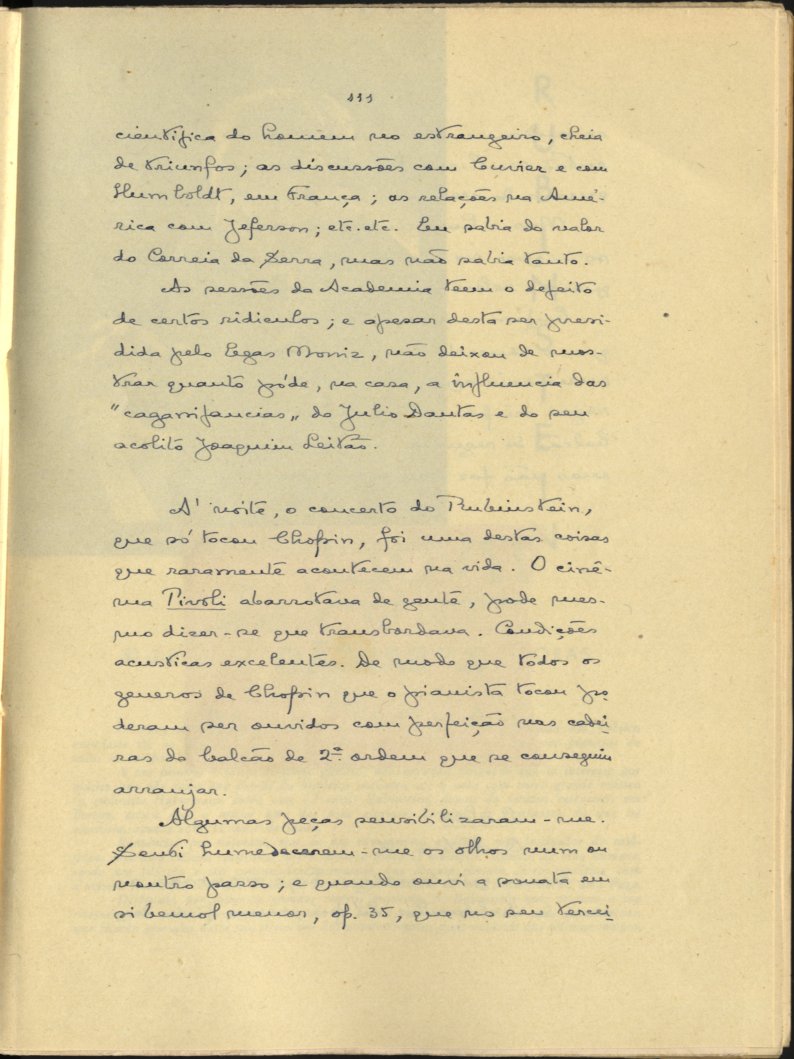 111
cientifica do homem no estrangeiro, cheia
de triunfos; as discussões com Cuvier e com
Humboldt, em França; as relações na Amé-
rica com Jeferson; etc. etc. Eu sabia do valor
do Correia da Serra, mas não sabia tanto.
As sessões da Academia teem o defeito
de certos ridiculos; e apesar desta ser presi-
dida pelo Egas Moniz, não deixou de mos-
trar quanto póde, na casa, a influencia das
"cagarrifancias„ do Julio Dantas e do seu
acolito Joaquim Leitão.
A' noite, o concerto do Rubinstein,
que só tocou Chopin, foi uma destas coisas
que raramente acontecem na vida. O ciné-
ma Tivoli abarrotava de gente, póde mes-
mo dizer-se que transbordava. Condições
acusticas excelentes. De modo que todos os
generos de Chopin que o pianista tocou po-
deram ser ouvidos com perfeição nas cadei-
ras do balcão de 2ª ordem que se conseguiu
arranjar.
Algumas peças sensibilizaram-me.
Senti humedecerem-me os olhos num ou
noutro passo; e quando ouvi a sonata em
si bemol menor, op. 35, que no seu tercei-